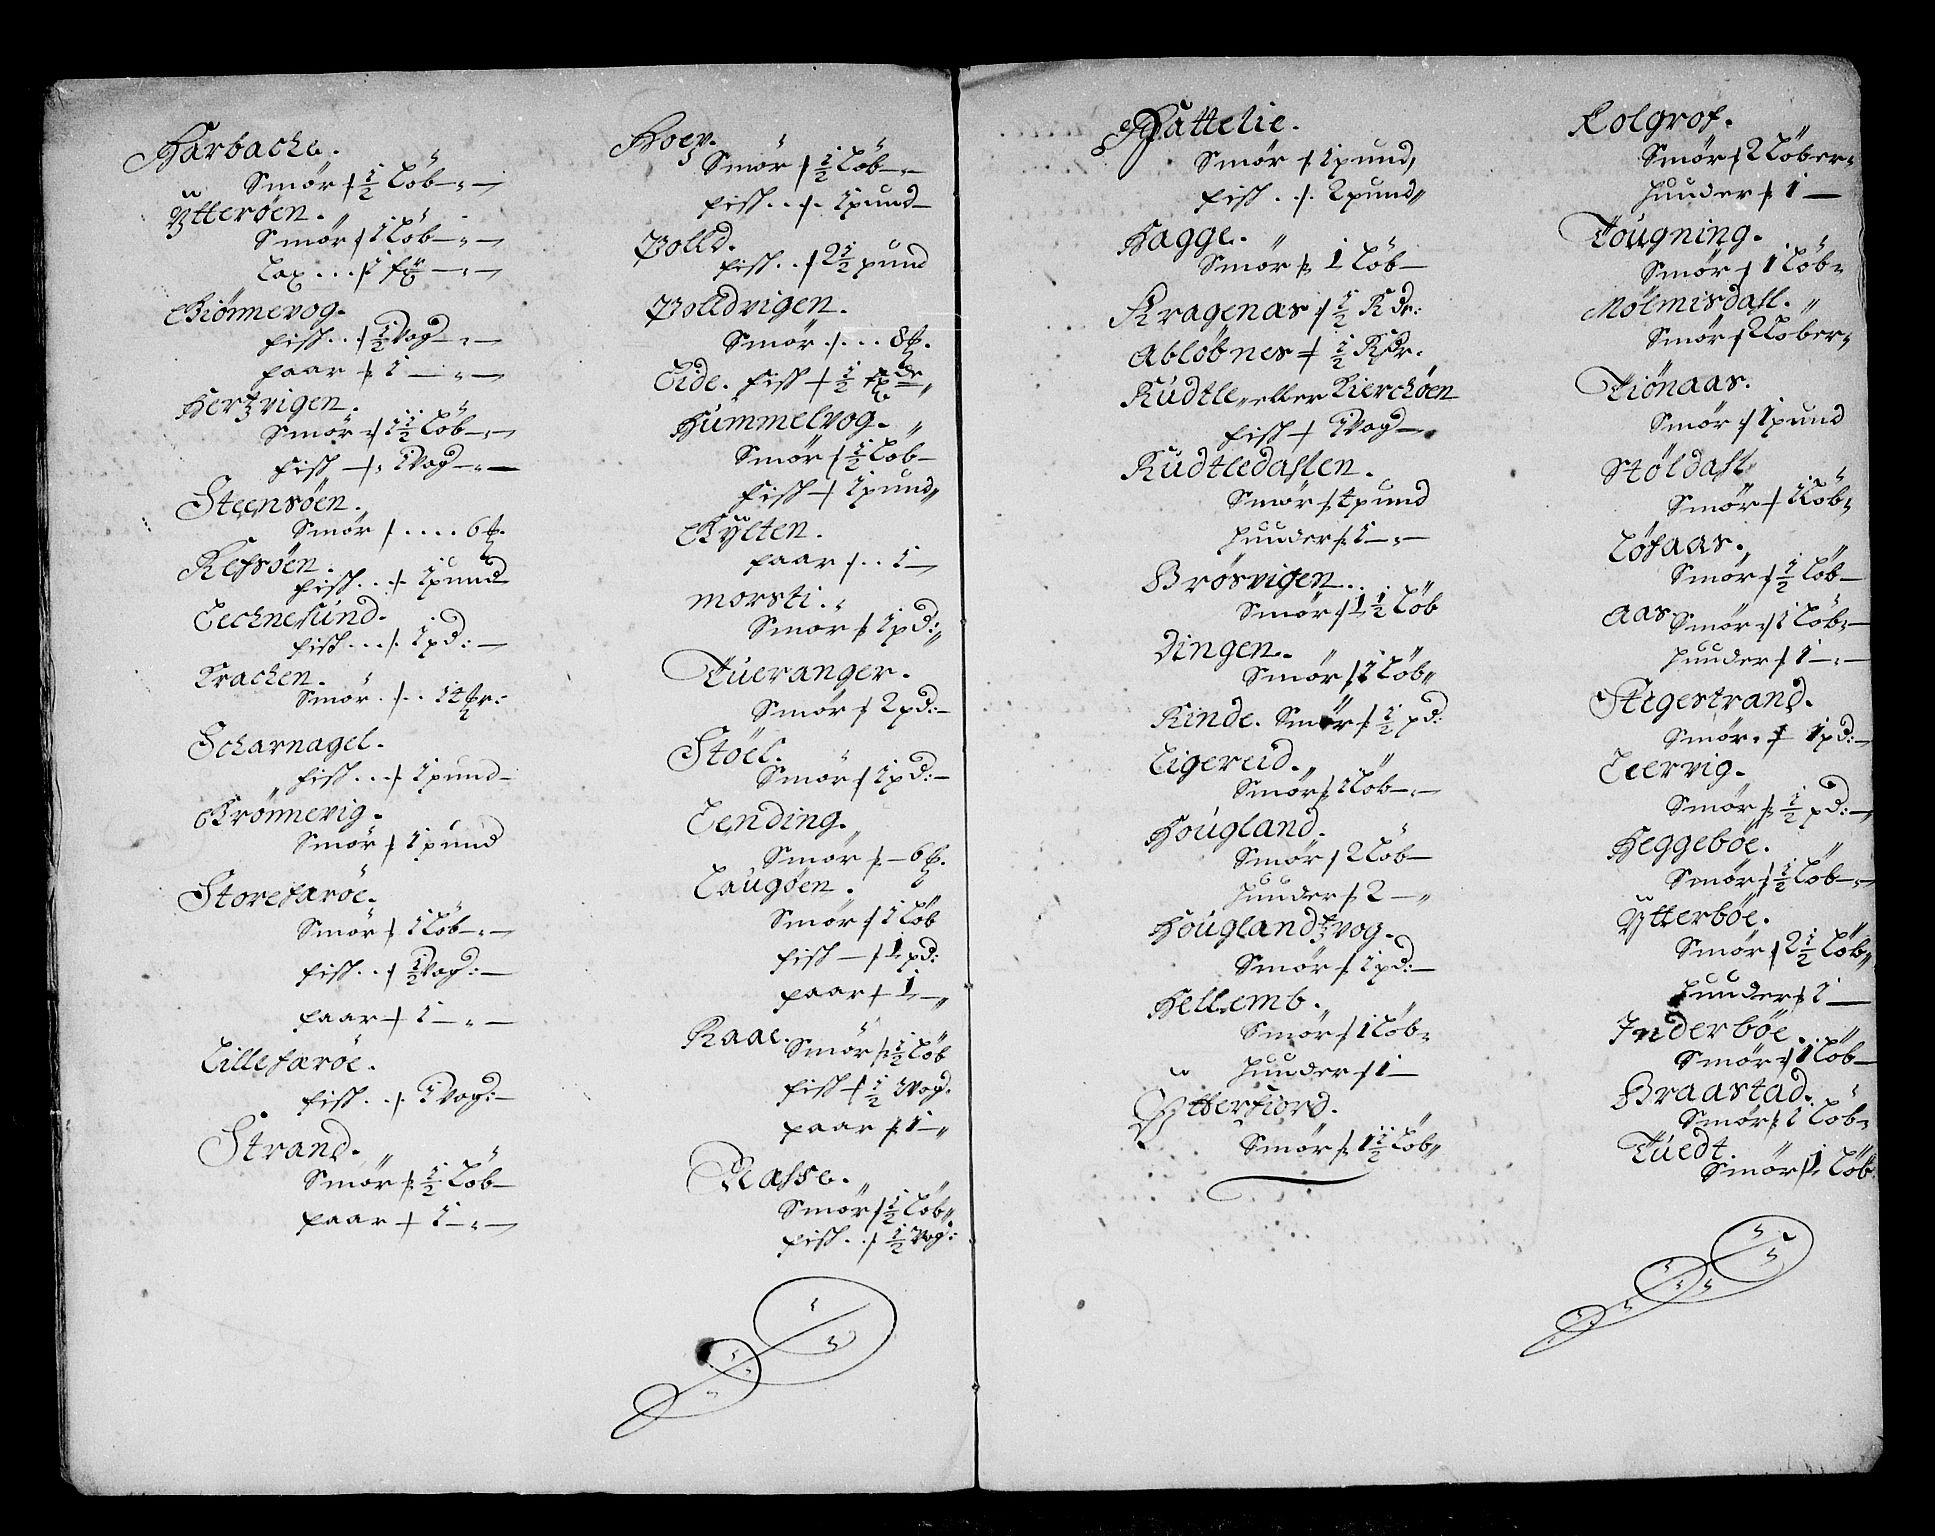 Harbacka.
Smør /: 1/2 Løb — „ —
Ytterøen.
Smør /: 1 Løb — „ —
Lax . . . /: 1 
Grønnevog.
fisk . . /: 1/2 Vog — „ —
faar /: 1 — „ —
Hertzvigen.
Smør /: 1 1/2 Løb — „ —
fisk — /: 1 Vog — „ —
Steensøen.
Smør /: . . . . 6 ℔.
Refsøen.
fisk . . . /: 1 pund
Technesund.
fisk . . . /: 1 pd: —
Krachen.
Smør . /: . . 14 ℔r:
Scharnagel.
fisk . . . /: 1 pund —
Grønnevig.
Smør /: 1 pund
Storefarøe.
Smør /: 1 Løb — „ —
fisk . . /: 1/2 Vog: —
faar /: 1 — „ —
Lillefarøe.
fisk . . /: 1 Vog: —
Strand.
Smør /: 1/2 Løb —
faar /: 1 — „ —
Hoey.
Smør /: 1/2 Løb — „ —
fisk . . . /: 1 pund —
Volld.
fisk . . /: 2 1/2 pund
Volldvigen.
Smør . /: . . . 8 ℔.
Eide. fisk /: 1/2
Hummelvog.
Smør /: 1/2 Løb —
fisk /: 1 pund „
Gylten.
faar /: . . 1 —
morsti.
Smør /: 1 pd: „
Tueranger.
Smør /: 2 pd: —
Støel.
Smør /: 1 pd: —
Lending.
Smør /: — 6 ℔.
Laugøen.
Smør /: 1 Løb
fisk — /: 1 pd:
faar /: 1 — „
Raae. Smør /: 1/2 Løb
fisk /: 1/2 Vog.
faar /: 1 — „
Nasse.
Smør /: 1/2 Løb „
fisk . . /: 1/2 Vog:
Hattelie.
Smør /: 1 pund,
fisk . . /: 2 pund „
Hagge.
Smør /: 1 Løb —
Kragenas /: 1/2 Rdr:
Abløbnes /: 1/2 Rdr.
Kudtle „ eller Kierchøen
fisk /: 1 Vog —
Kudtledallen.
Smør /: 1 pund
huuder /: 1 — „ —
Brøsvigen.
Smør /: 1 1/2 Løb
Dingen.
Smør /: 1 Løb „
Kinde. Smør /: 1/2 pd:
Eigereid.
Smør /: 1 Løb — „ —
Hougland.
Smør /: 2 Løb —
huuder /: 2 — „
Houglandtzvog.
Smør /: 1 pd: —
Hellemb.
Smør /: 1 Løb „
huuder /: 1 —
Ytterfiord.
Smør /: 1 1/2 Løb „
Kolgrof.
Smør /: 2 Løber „
huuder /: 1 —
Tougning.
Smør /: 1 Løb „
Mølmisdall.
Smør /: 2 Løber „
Tiønaas.
Smør /: 1 pund
Støldall
Smør /: 1 Løb „
Løfaas.
Smør /: 1/2 Løb —
Aas Smør /: 1 Løb „ —
huuder /: 1 — „ —
Stegestrand.
Smør . /: 1 pd: —
Leervig.
Smør /: 1/2 pd: —
Heggebøe.
Smør /: 1/2 Løb — „ —
Ytterbøe.
Smør /: 2 1/2 Løb „
huuder /: 1 —
Inderbøe.
Smør /: 1 Løb —
Braastad.
Smør /: 1 Løb „
Tuedt.
Smør /: 1 Løb